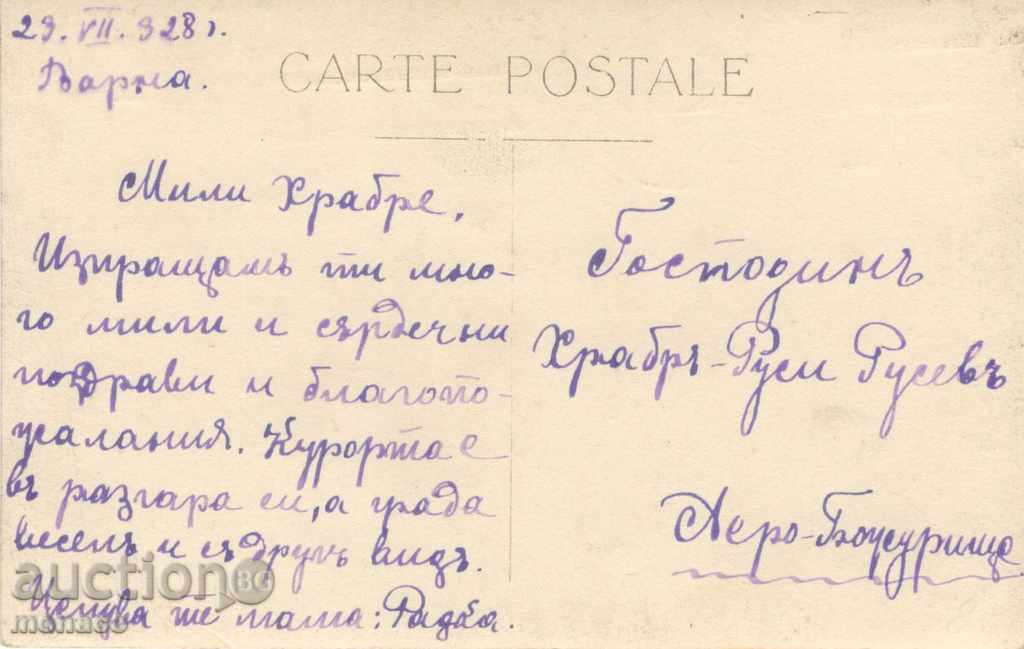 23. VII. 928 г.
Варна.
CARTE POSTALE
Мили Храбре,
Изпращамъ ти мно-
го мили и сърдечни
поздрави и благопо-
желания. Курорта е
въ разгара си, а града
веселъ и съ другъ видъ.
Целува те мама: Радка.
Господинъ
Храбръ-Руси Русевъ
Аеро-Божурище
auction BG
monaco